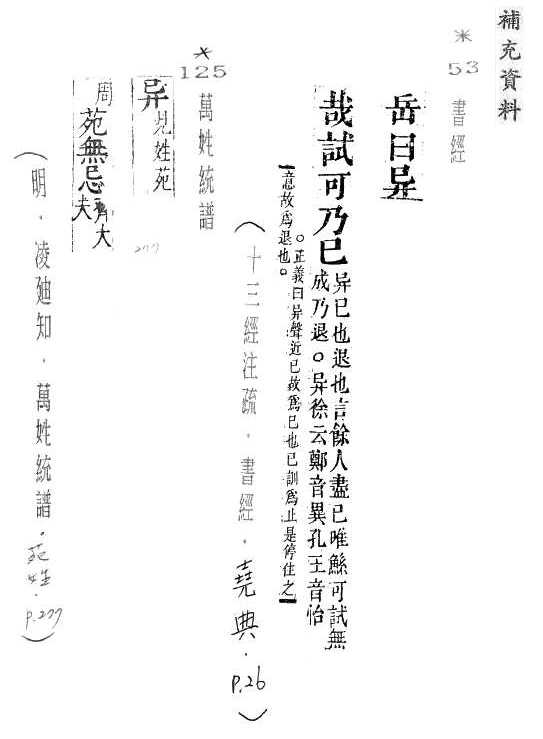 補充資料
※
53
書經
岳曰异
哉試可乃已
异已也退也言餘人盡已唯鯀可試無
成乃退。异徐云鄭音異孔王音怡
。正義曰异聲近已故為已也已訓為止是停住之
意故為退也。
(十三經注疏.書經.堯典.P.26)
※
125
萬姓統譜
异見姓苑
277
周
苑無忌齊大
夫
(明.凌迪知.萬姓統譜.苑姓.P.277)